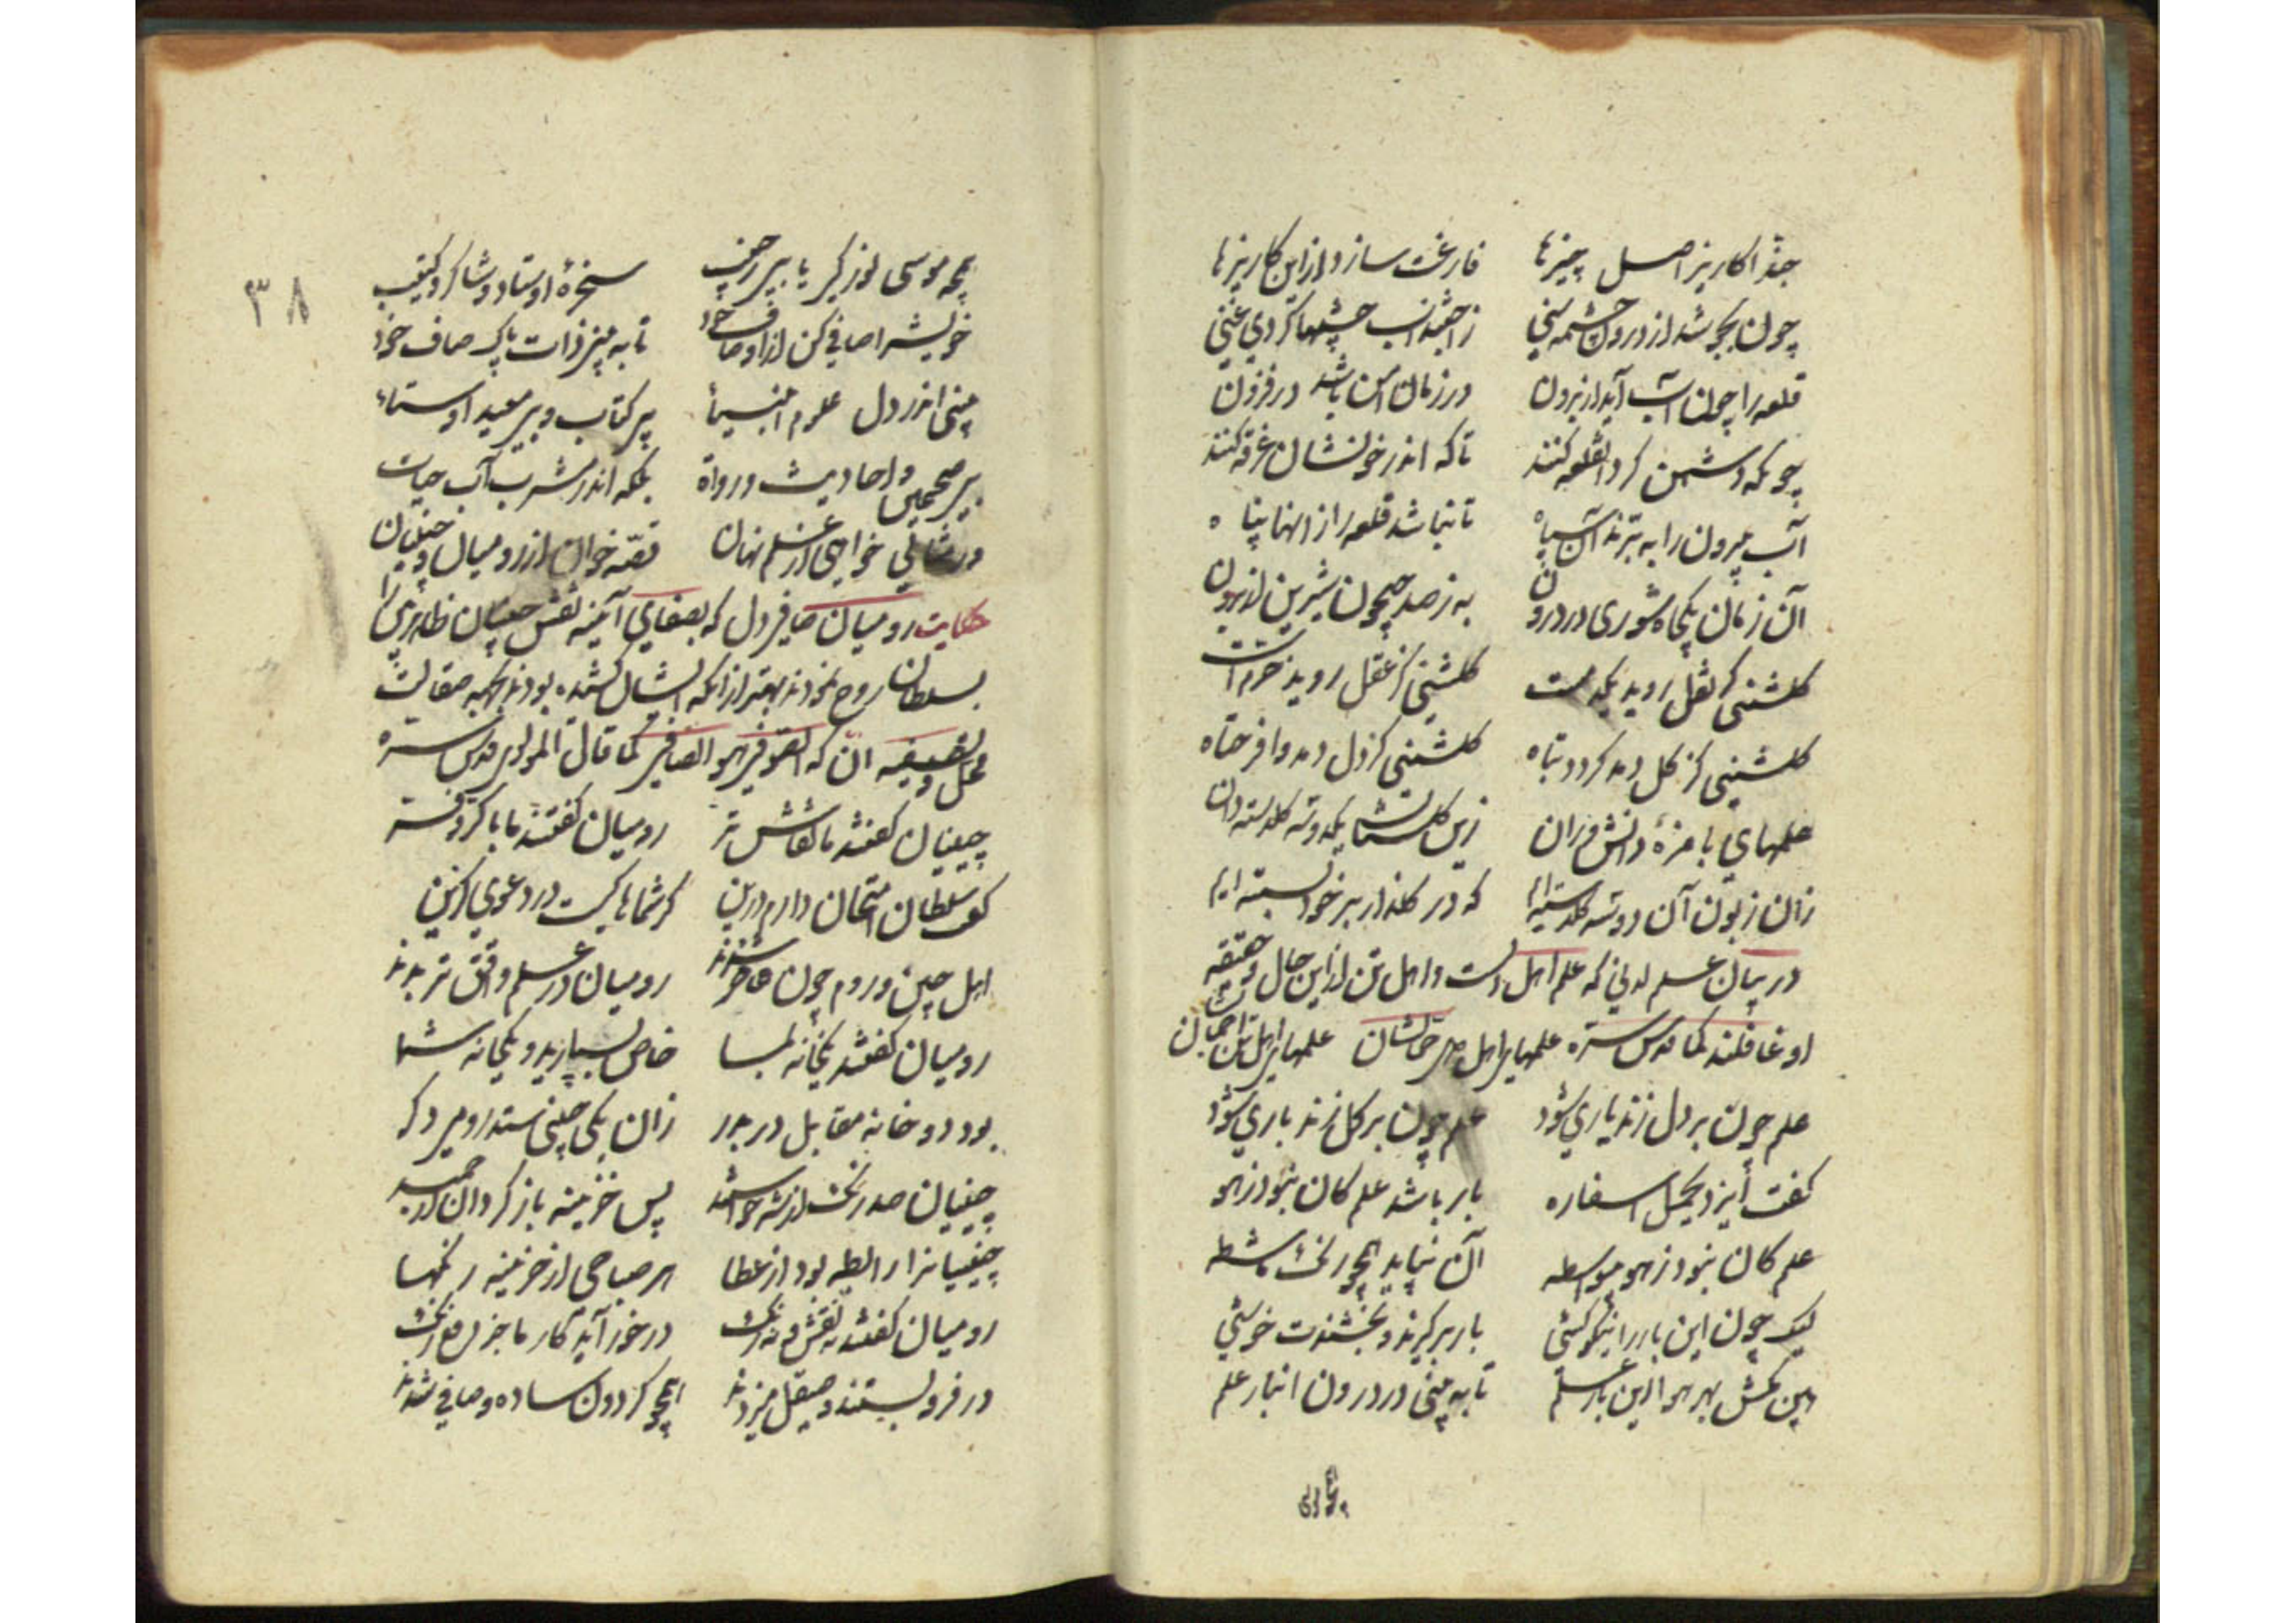 حبذا کاریز اصل چیزها فارغت سازد از این کاریزها
چون بجوشد از درون چشمه سنی ز اجتذاب چشمها کردی غنی
قلعه را چون آب آید از برون در زمان امن باشد در فزون
چونکه دشمن کرد آن قلعه کنند تا که اندر خونشان غرقه کنند
آب بیرون را به برند آن سپاه تا نباشد قلعه را از آنها پناه
آن زمان یک چاه شوری در درون به ز صد جیحون شیرین از برون
کلشنی کز نقل روید یکدمست کلشنی کز عقل روید خرم است
کلشنی کز کل دمد کردد تباه کلشنی کز دل دمد وا فرحتاه
علمهای با مزهٔ دانش مران زین کلستان یکدوسه کلدسته دان
زان زبون آن دوسه کلدسته ایم که در کلذار بر خود بسته ایم
در بیان علم لدنی که علم اهل دلست و اهل تن از این حال و حقیقت
او غافلند کما قدس سره علمهای اهل دل حمالشان علمهای اهل تن احمالشان
علم چون بر دل زند یاری شود علم چون بر کل زند باری شود
کفت ایزد یحمل اسفاره بار باشد علم کان نبود ز هو
علم کان نبود ز هو بیواسطه آن نپاید همچو رنک ماشطه
لیک چون این بار را نیکو کشی بار برکیرند و بخشندت خوشی
هین مکش بهر هوا این بار علم تا به بینی در درون انبار علم
۳۸
همچو موسی نور کی یابد ز جیب سخرهٔ اوستاد و شاکرد کتیب
خویش را صافی کن از اوصاف خود تا به بینی ذات پاک صاف خود
بینی اندر دل علوم انبیا بی کتاب و بی معید اوستا
بی صحیحین و احادیث و رواة بلکه اندر مشرب آب حیات
ور مثالی خواهی از علم نهان قصه خوان از رومیان و چینیان
حکایت رومیان صافی دل که بصفای آینه نقش چینیان ظاهری را
بسلطان روح نمودند بهتر از آنکه ایشان کشیده بودند بجهة صقالت
محل و تصفیه آن که الصوفی هو الصافی کما قال المولوی قدس سره
چینیان کفتند ما نقاش تر رومیان کفتند ما با کر و فر
کفت سلطان امتحان دارم درین کز شماها کیست در دعوی کزین
اهل چین و روم چون حاضر شدند رومیان در علم واقف تر بدند
رومیان کفتند یکخانه بما خاص بسپارید و یکخانه شما
بود دو خانه مقابل در بدر زان یکی چینی ستد رومی دکر
چینیان صد رنک از شه خواستند پس خزینه باز کرد آن ارجمند
چینیان را رابطه بود از عطا هر صباحی از خزینه رنکها
رومیان کفتند نه نقش و نه رنک در خور آید کار ما جز دفع زنک
در فرو بستند و صیقل میزدند همچو کردون ساده و صافی شدند